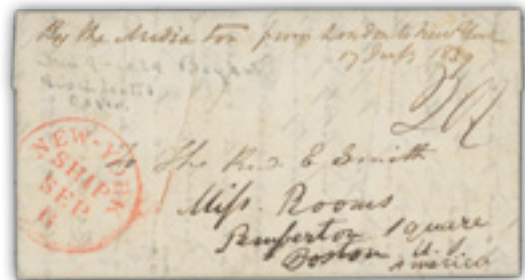 By the Mediator from London to New York
17 July 1839
20¾
NEW-YORK
SHIP
SEP.
6
To The Revd E Smith
Miss. Rooms
Pemberton Square
Boston U.S.
America